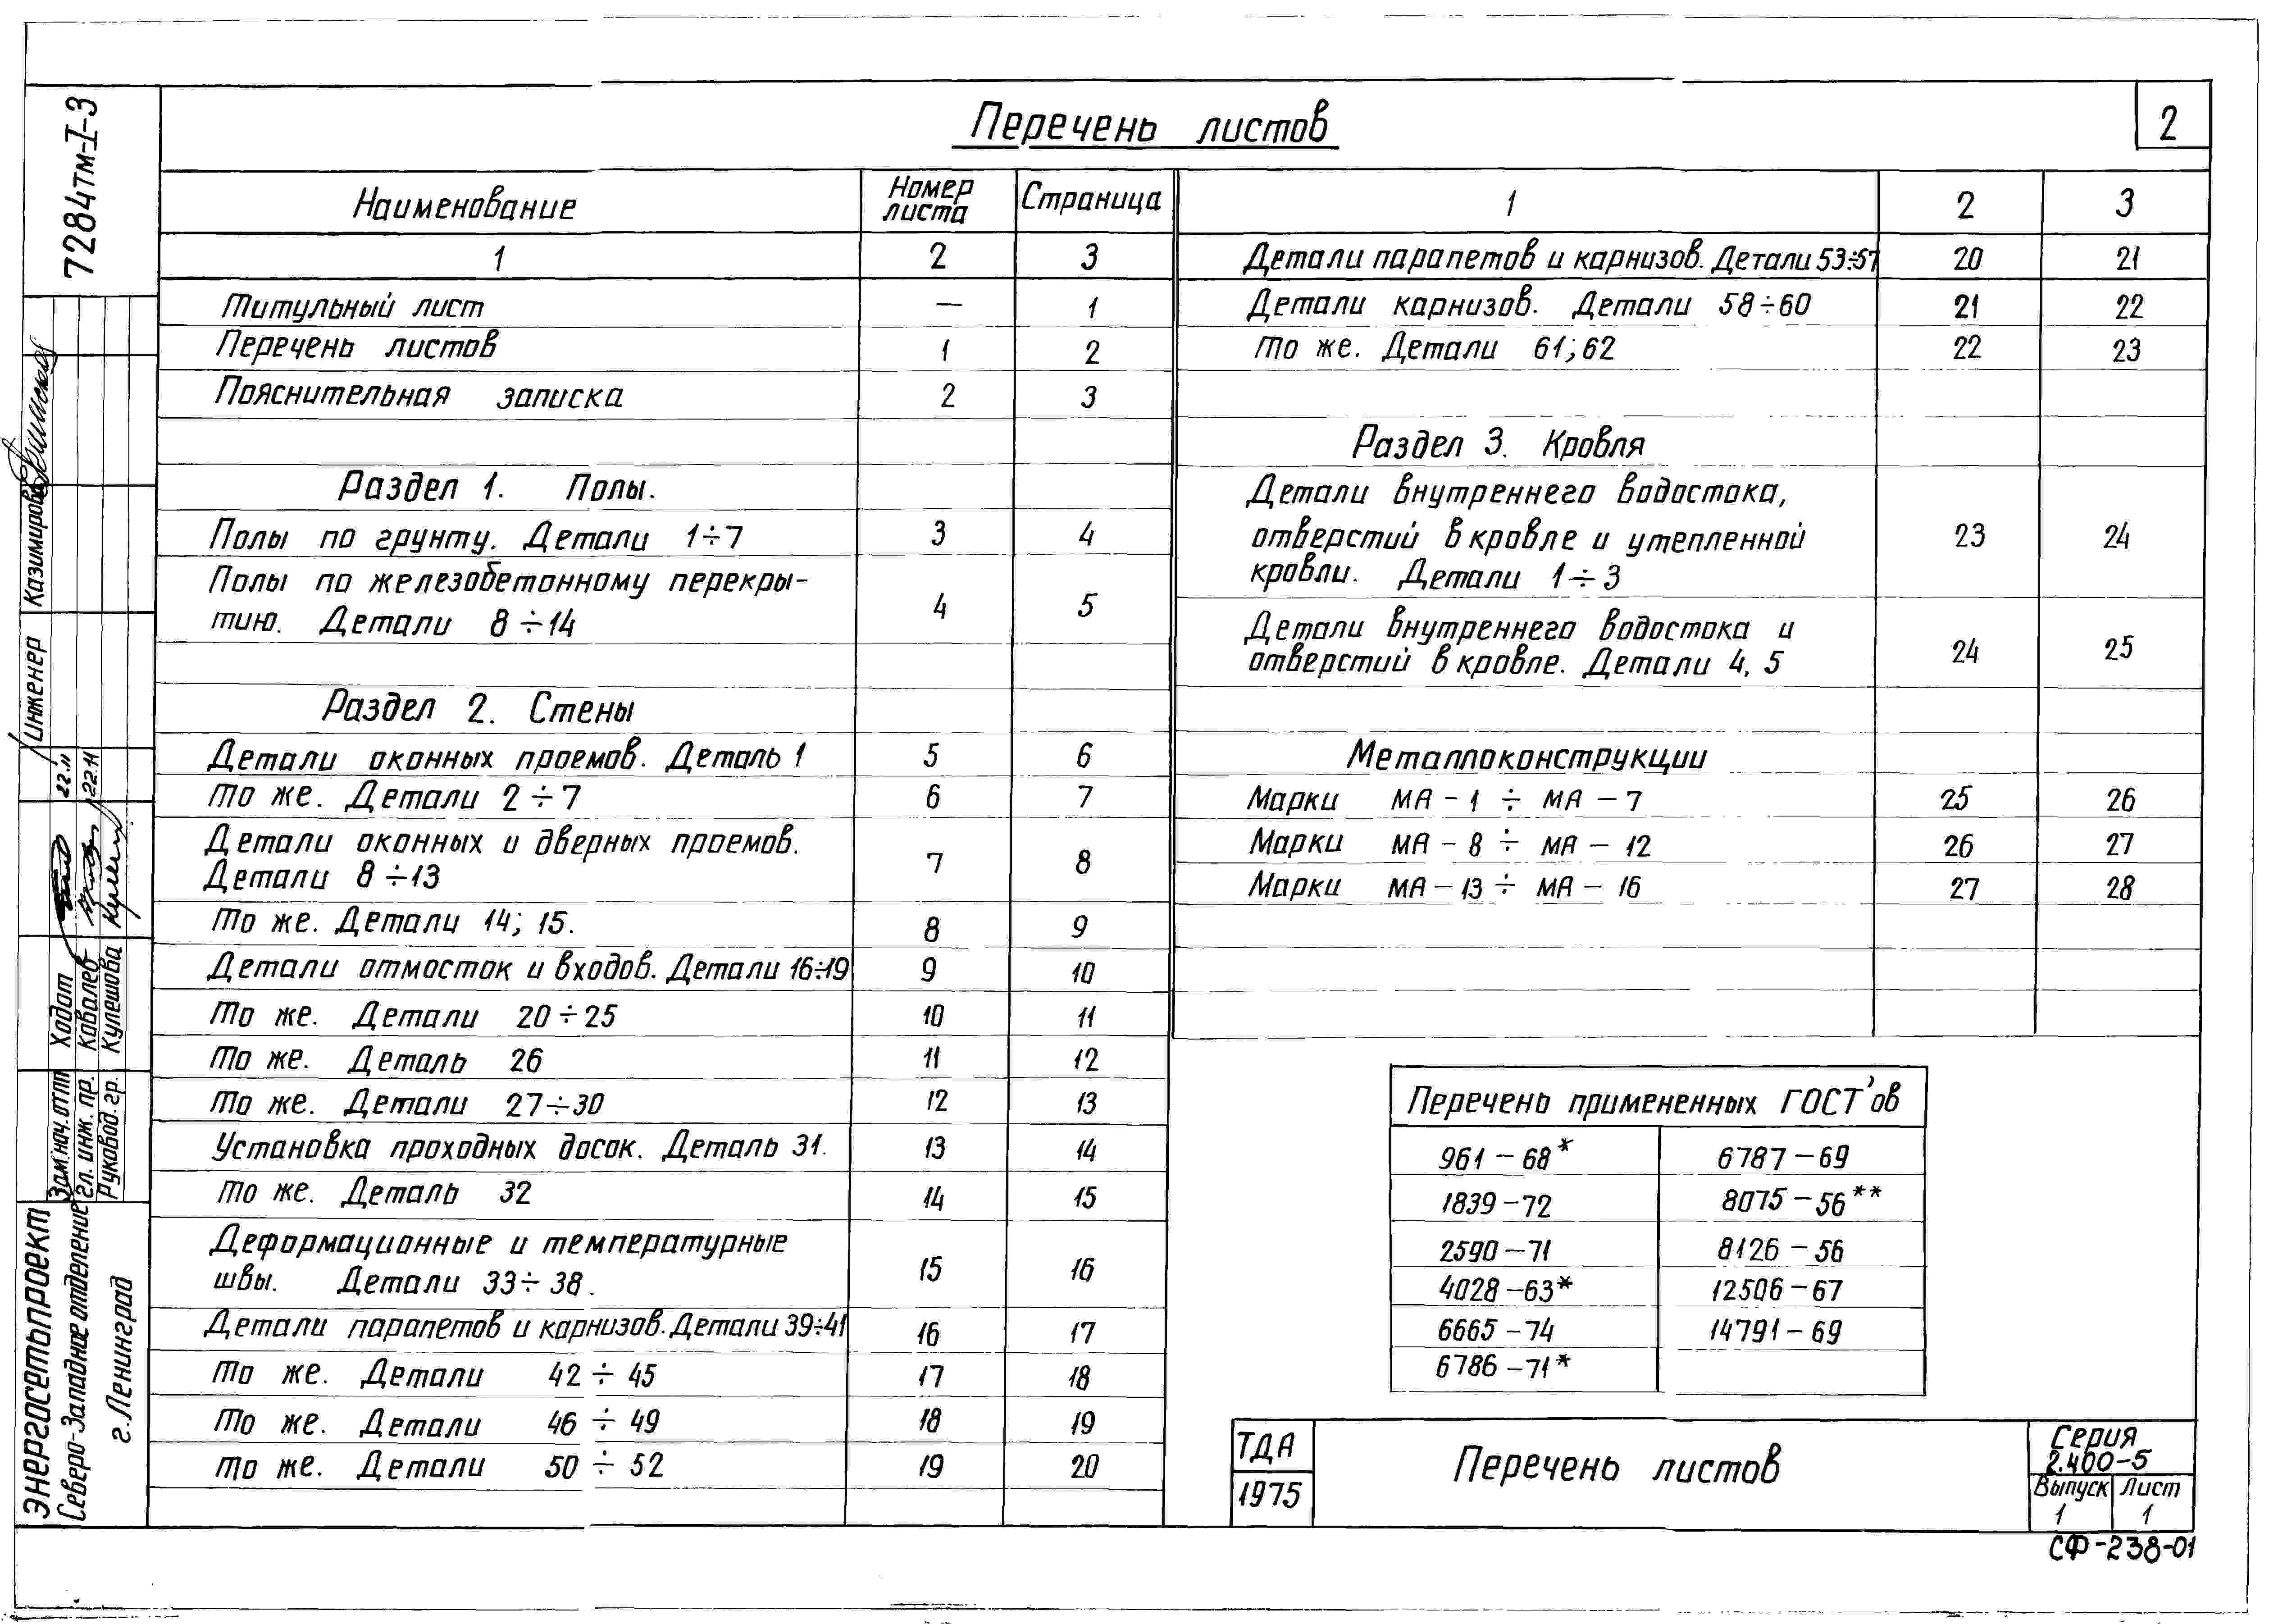 Перечень листов
2
7284тм-I-3
Наименование Номер листа Страница
1 2 3
Титульный лист — 1
Перечень листов 1 2
Пояснительная записка 2 3
Раздел 1. Полы.
Полы по грунту. Детали 1÷7 3 4
Полы по железобетонному перекры-
тию. Детали 8÷14 4 5
Раздел 2. Стены
Детали оконных проемов. Деталь 1 5 6
То же. Детали 2÷7 6 7
Детали оконных и дверных проемов.
Детали 8÷13 7 8
То же. Детали 14; 15. 8 9
Детали отмосток и входов. Детали 16÷19 9 10
То же. Детали 20÷25 10 11
То же. Деталь 26 11 12
То же. Детали 27÷30 12 13
Установка проходных досок. Деталь 31. 13 14
То же. Деталь 32 14 15
Деформационные и температурные
швы. Детали 33÷38. 15 16
Детали парапетов и карнизов. Детали 39÷41 16 17
То же. Детали 42÷45 17 18
То же. Детали 46÷49 18 19
То же. Детали 50÷52 19 20
1 2 3
Детали парапетов и карнизов. Детали 53÷57 20 21
Детали карнизов. Детали 58÷60 21 22
То же. Детали 61; 62 22 23
Раздел 3. Кровля
Детали внутреннего водостока,
отверстий в кровле и утепленной 23 24
кровли. Детали 1÷3
Детали внутреннего водостока и
отверстий в кровле. Детали 4, 5 24 25
Металлоконструкции
Марки МА-1 ÷ МА-7 25 26
Марки МА-8 ÷ МА-12 26 27
Марки МА-13 ÷ МА-16 27 28
Перечень примененных ГОСТ'ов
961-68* 6787-69
1839-72 8075-56**
2590-71 8126-56
4028-63* 12506-67
6665-74 14791-69
6786-71*
ТДА
1975
Перечень листов
Серия
2.400-5
Выпуск Лист
1 1
СФ-238-01
Инженер Казимирова
22.11
22.11
Зам.нач.отп Ходот
Гл. инж. пр. Ковалев
Руковод. гр. Кулешова
Энергосетьпроект
Северо-Западное отделение
г. Ленинград